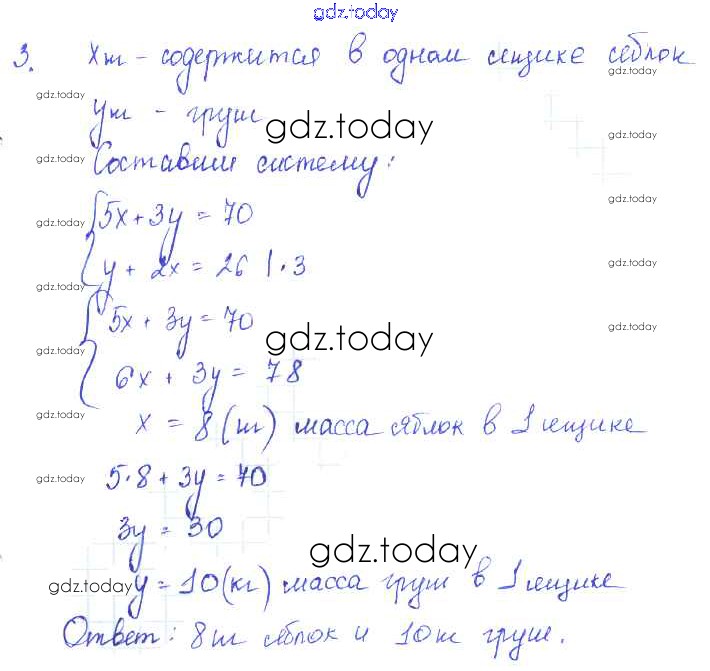 gdz.today
3. х кг - содержится в одном ящике яблок
gdz.today gdz.today
у кг - груш
gdz.today gdz.today gdz.today
Составим систему:
gdz.today
5х + 3у = 70 gdz.today
gdz.today
у + 2х = 26 | · 3 gdz.today
gdz.today
5х + 3у = 70 gdz.today
gdz.today gdz.today
6х + 3у = 78
х = 8 (кг) масса яблок в 1 ящике
gdz.today
5·8 + 3у = 70
gdz.today
3у = 30
gdz.today
gdz.today у = 10 (кг) масса груш в 1 ящике
Ответ: 8 кг яблок и 10 кг груш.